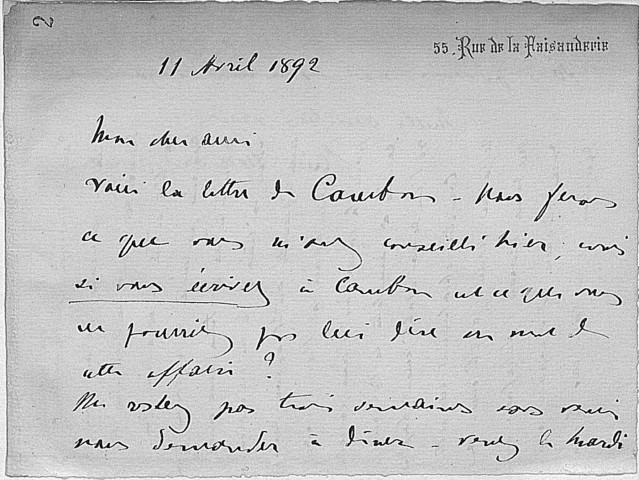 2
55. Rue de la Faisanderie
11 Avril 1892
Mon cher ami
Voici la lettre de Cambon - Nous ferons
ce que vous m'avez conseillé hier, mais
si vous écrivez à Cambon est-ce que vous
ne pourriez pas lui dire un mot de
cette affaire ?
Ne restez pas trois semaines sans venir
nous demander à dîner - venez le mardi